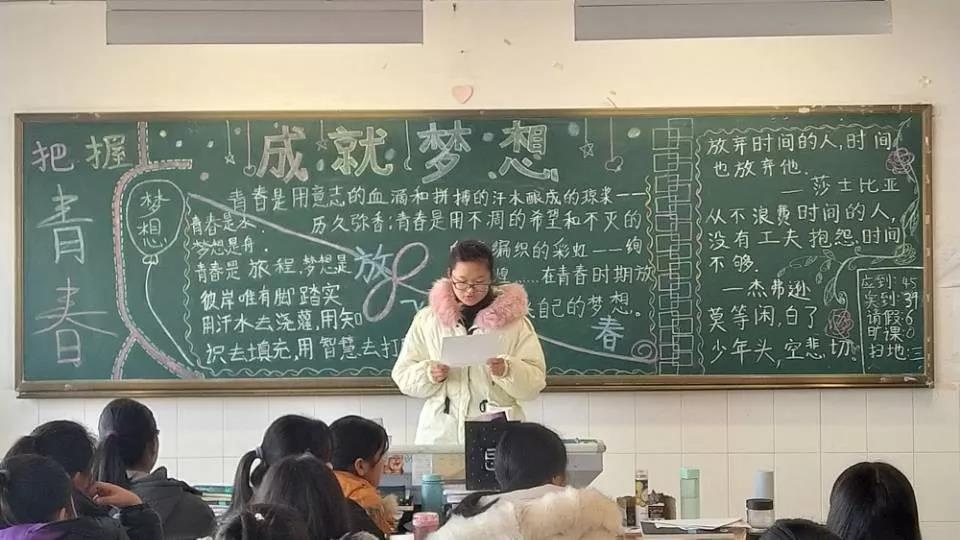 把握
青春
成就梦想
梦想
青春是用意志的血滴和拼搏的汗水酿成的琼浆——
历久弥香;青春是用不凋的希望和不灭的
编织的彩虹——绚
煌……在青春时期放
自己的梦想。
青春是水,
梦想是舟。
青春是旅程,梦想是
彼岸唯有脚踏实
用汗水去浇灌,用知
识去填充,用智慧去打
放
春
放弃时间的人,时间
也放弃他.
—莎士比亚
从不浪费时间的人,
没有工夫抱怨,时间
不够.
—杰弗逊
莫等闲,白了
少年头,空悲切
应到:45
实到:39
请假:6
旷课:0
扫地:三